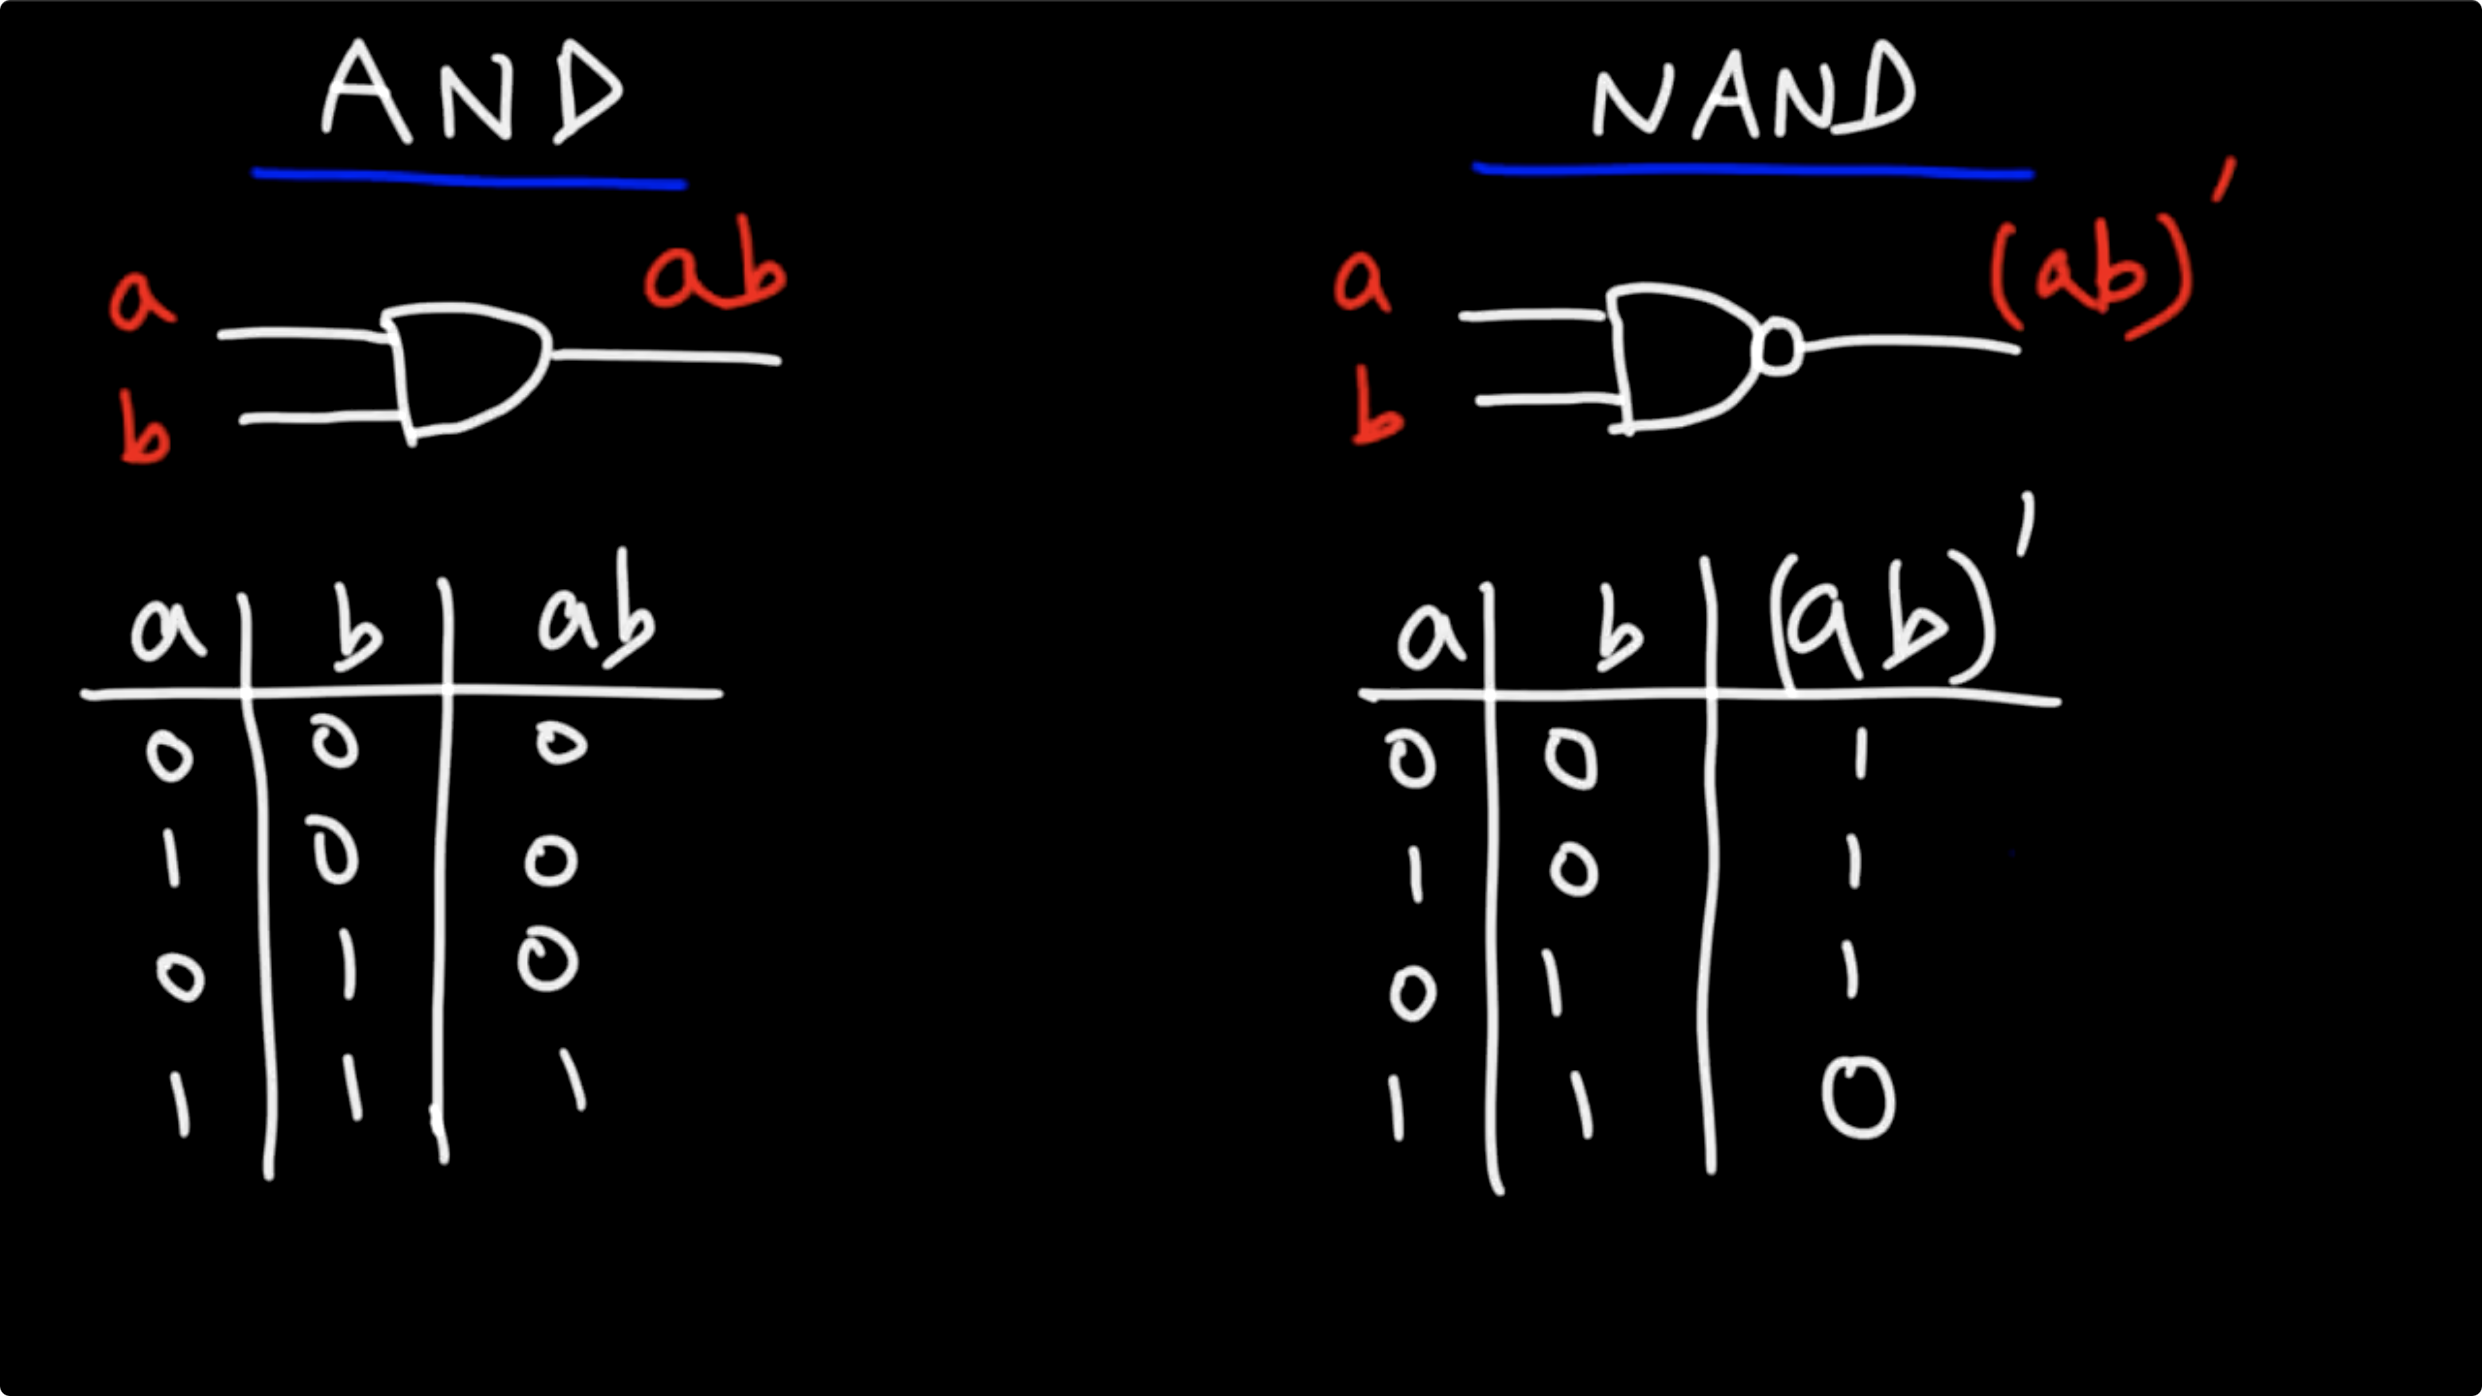 AND
a
ab
b
a b ab
0 0 0
1 0 0
0 1 0
1 1 1
NAND
a
(ab)'
b
a b (ab)'
0 0 1
1 0 1
0 1 1
1 1 0